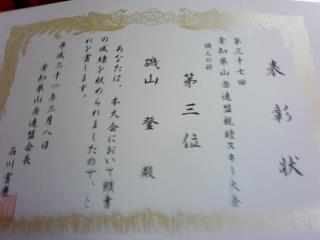 表彰状
第三十七回
愛知県山岳連盟親睦スキー大会
個人の部
第三位
磯山登殿
あなたは、本大会において頭書
の成績を収められましたので、こ
れを賞します。
平成二十一年三月八日
愛知県山岳連盟会長